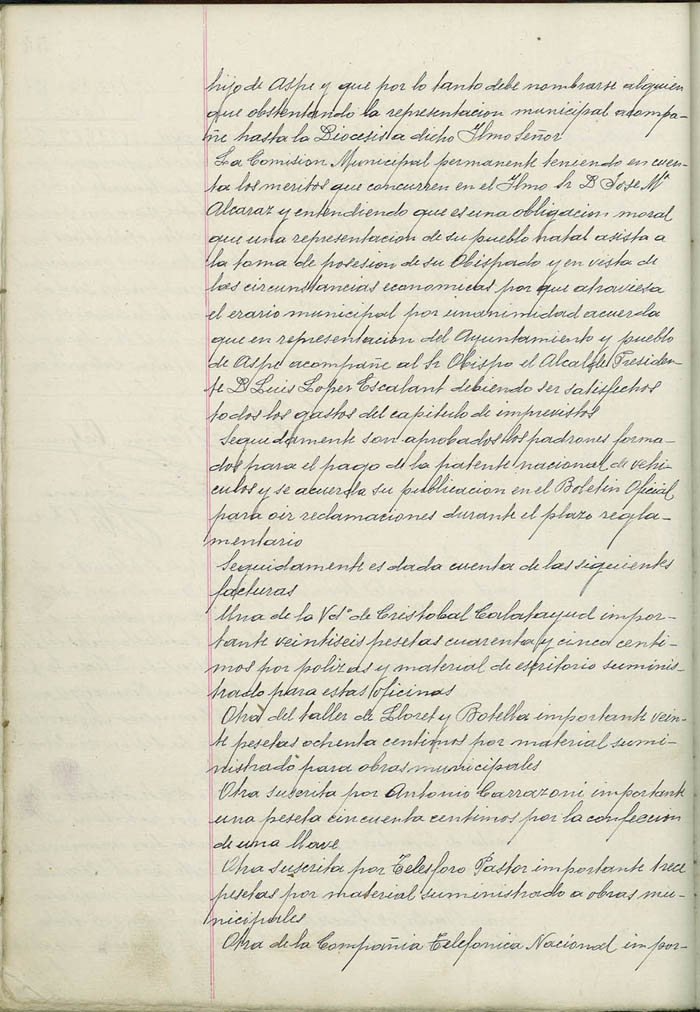 hijo de Aspe y que por lo tanto debe nombrarse alguien
que obstentando la representacion municipal acompa-
ñe hasta la Diocesis a dicho Ilmo Señor
La Comision Municipal permanente teniendo en cuen-
ta los meritos que concurren en el Ilmo Sr D Jose Mª
Alcaraz y entendiendo que es una obligacion moral
que una representacion de su pueblo natal asista a
la toma de posesion de su Obispado y en vista de
las circunstancias economicas por que atraviesa
el erario municipal por unanimidad acuerda
que en representacion del Ayuntamiento y pueblo
de Aspe acompañe al Sr Obispo el Alcalde Presiden-
te D Luis Lopez Escalant debiendo ser satisfechos
todos los gastos del capitulo de imprevistos
Seguidamente son aprobados los padrones forma-
dos para el pago de la patente nacional de vehi-
culos y se acuerda su publicacion en el Boletin Oficial
para oir reclamaciones durante el plazo regla-
mentario
Seguidamente es dada cuenta de las siguientes
facturas
Una de la Vdª de Cristobal Calatayud impor-
tante veintiseis pesetas cuarenta y cinco centi-
mos por polizas y material de escritorio suminis-
trado para estas oficinas
Otra del taller de Lloret y Botella importante vein-
te pesetas ochenta centimos por material sumi-
nistrado para obras municipales
Otra suscrita por Antonio Carrazoni importante
una peseta cincuenta centimos por la confeccion
de una llave
Otra suscrita por Telesforo Pastor importante trece
pesetas por material suministrado a obras mu-
nicipales
Otra de la Compañia Telefonica Nacional impor-